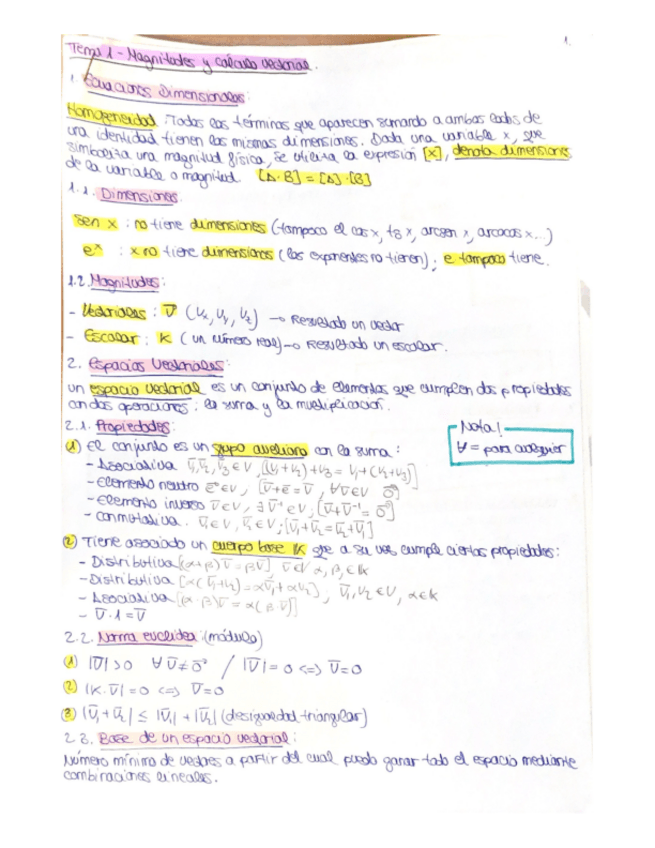 1.
Tema 1 - Magnitudes y cálculo vectorial.
1. Ecuaciones Dimensionales:
Homogeneidad. Todos los términos que aparecen sumando a ambos lados de
una identidad tienen las mismas dimensiones. Dada una variable x, que
simboliza una magnitud física, se utiliza la expresión [x], denota dimensiones
de la variable o magnitud. [A·B] = [A]·[B]
1.1. Dimensiones
sen x : no tiene dimensiones (tampoco el cos x, tg x, arcsen x, arcocos x...)
eˣ : x no tiene dimensiones (los exponentes no tienen); e tampoco tiene.
1.2 Magnitudes:
- Vectoriales : V̄ (Vx, Vy, Vz) → Resultado un vector
- Escalar : K (un número real) → Resultado un escalar.
2. Espacios Vectoriales:
un espacio vectorial es un conjunto de elementos que cumplen dos propiedades
con dos operaciones: la suma y la multiplicación.
2.1. Propiedades:
Nota!
∀ = para cualquier
1) El conjunto es un grupo aveliano con la suma:
- Asociativa V̄1, V̄2, V̄3 ∈ V, [(V̄1 + V̄2) + V̄3 = V̄1 + (V̄2 + V̄3)]
- Elemento neutro ē ∈ V, [V̄ + ē = V̄, ∀V̄ ∈ V
- Elemento inverso V̄ ∈ V, ∃ V̄⁻¹ ∈ V; [V̄ + V̄⁻¹ = 0̄]
- Conmutativa. V̄1 ∈ V, V̄2 ∈ V; [V̄1 + V̄2 = V̄2 + V̄1]
2) Tiene asociado un cuerpo base K que a su vez cumple ciertas propiedades:
- Distributiva [(α+β)V̄ = βV̄] V̄ ∈ V α, β ∈ K
- Distributiva [α(V̄1 + V̄2) = αV̄1 + αV̄2] ; V̄1, V̄2 ∈ V, α ∈ K
- Asociativa [(α·β)V̄ = α(β·V̄)]
- V̄·1 = V̄
2.2. Norma euclídea: (módulo)
1) |V̄| > 0 ∀ V̄ ≠ 0̄ / |V̄| = 0 <=> V̄ = 0
2) |K·V̄| = 0 <=> V̄ = 0
3) |V̄1 + V̄2| ≤ |V̄1| + |V̄2| (desigualdad triangular)
2.3. Base de un espacio vectorial:
Número mínimo de vectores a partir del cual puedo ganar todo el espacio mediante
combinaciones lineales.